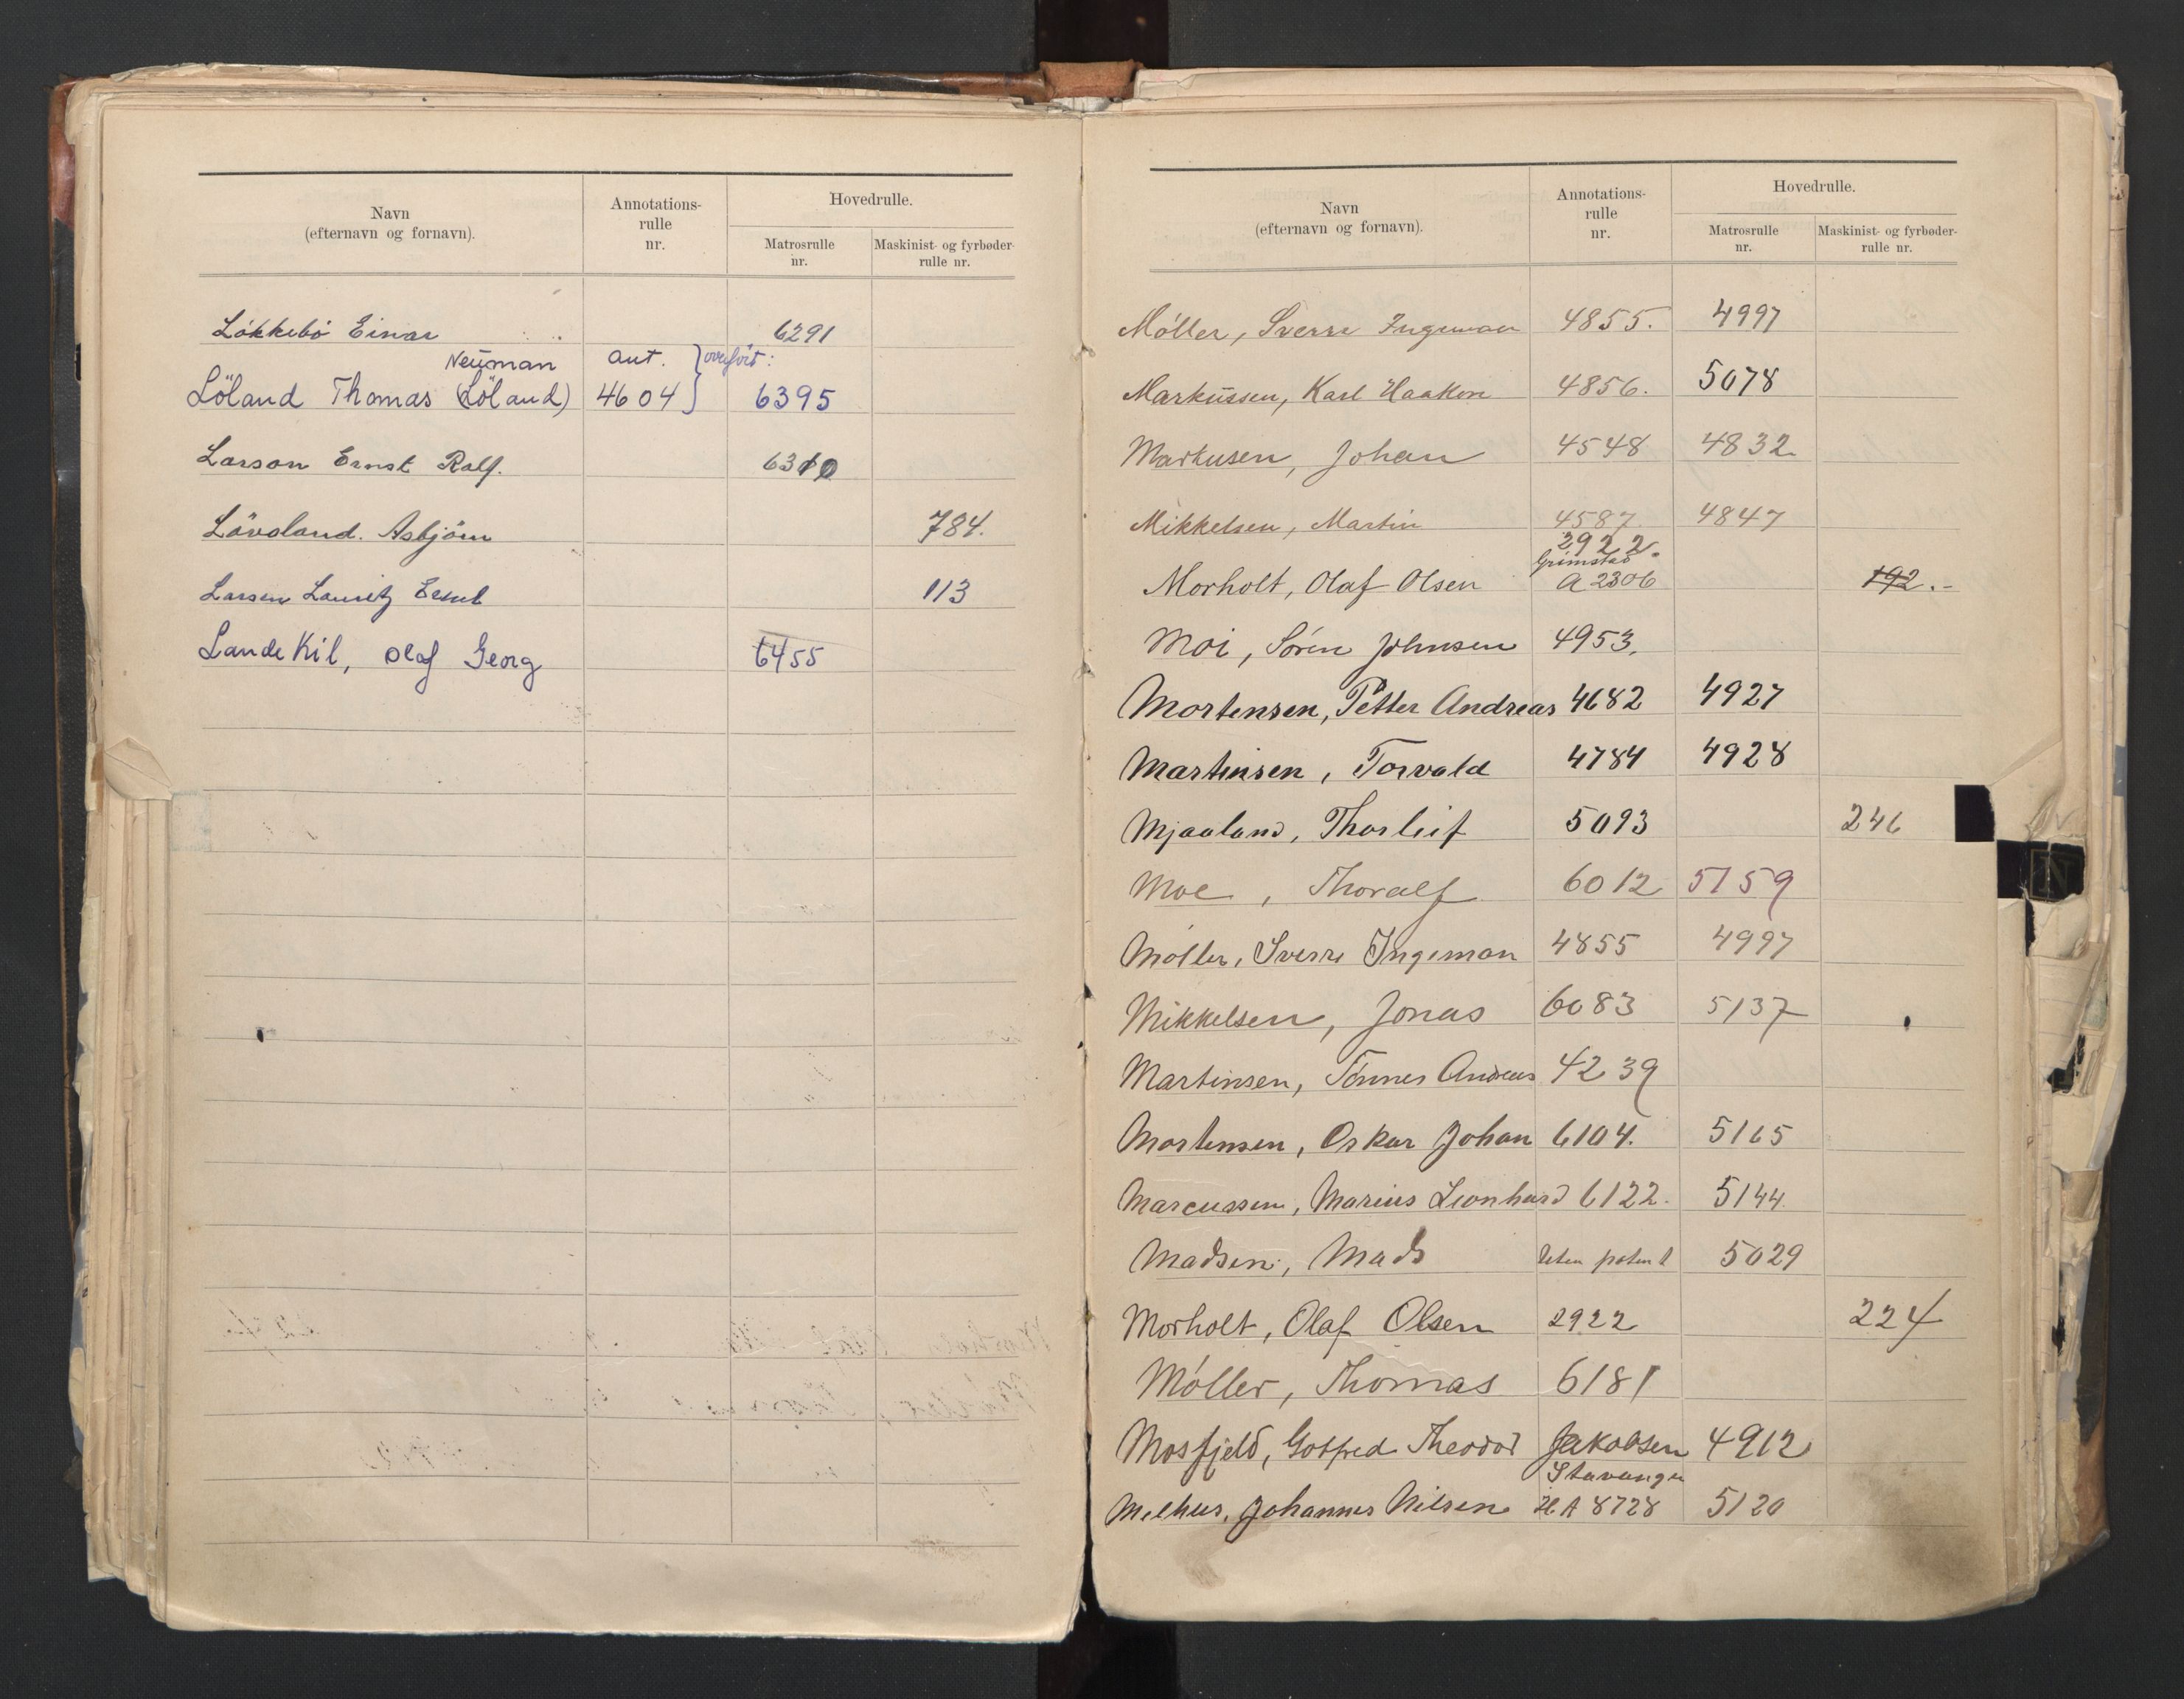 Navn
(efternavn og fornavn).
Annotations-
rulle
nr.
Hovedrulle.
Matrosrulle
nr.
Maskinist- og fyrbøder-
rulle nr.
Lökkebö Einar 6291
Neuman ant. overført:
Löland Thomas (Löland) 4604 } 6395
Larson Ernst Ralf. 6310
Lövoland. Asbjörn 784.
Larsen Lauritz Ernst 113
Landekil, Olaf Georg 6455
Navn
(efternavn og fornavn).
Annotations-
rulle
nr.
Hovedrulle.
Matrosrulle
nr.
Maskinist- og fyrbøder-
rulle nr.
Möller, Sverre Ingeman 4855. 4997
Markussen, Karl Haakon 4856. 5078
Markusen, Johan 4548 4832
Mikkelsen, Martin 4587 4847
2922.
Grimstad
Morholt, Olaf Olsen A 2306 192.-
Moi, Sören Johnsen 4953.
Mortensen, Petter Andreas 4682 4927
Martinsen, Torvald 4784 4928
Mjaaland, Thorleif 5093 246
Moe, Thoralf 6012 5159
Møller, Sverre Ingeman 4855 4997
Mikkelsen, Jonas 6083 5137
Martinsen, Tönnes Andreas 4239
Mortensen, Oskar Johan 6104. 5165
Marcussen, Marius Leonhard 6122. 5144
Madsen, Mads Uten patent 5029
Morholt, Olaf Olsen 2922 224
Möller, Thomas 6181
Mosfjeld, Gotfred Theodor Jakobsen 4912
Stavanger
Melhus, Johannes Nilsen H A 8728 5120